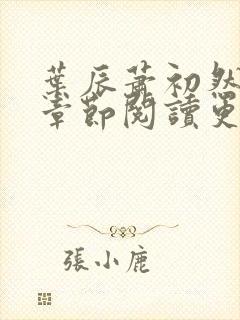 葉辰蕭初然
章節閱讀更
張小鹿